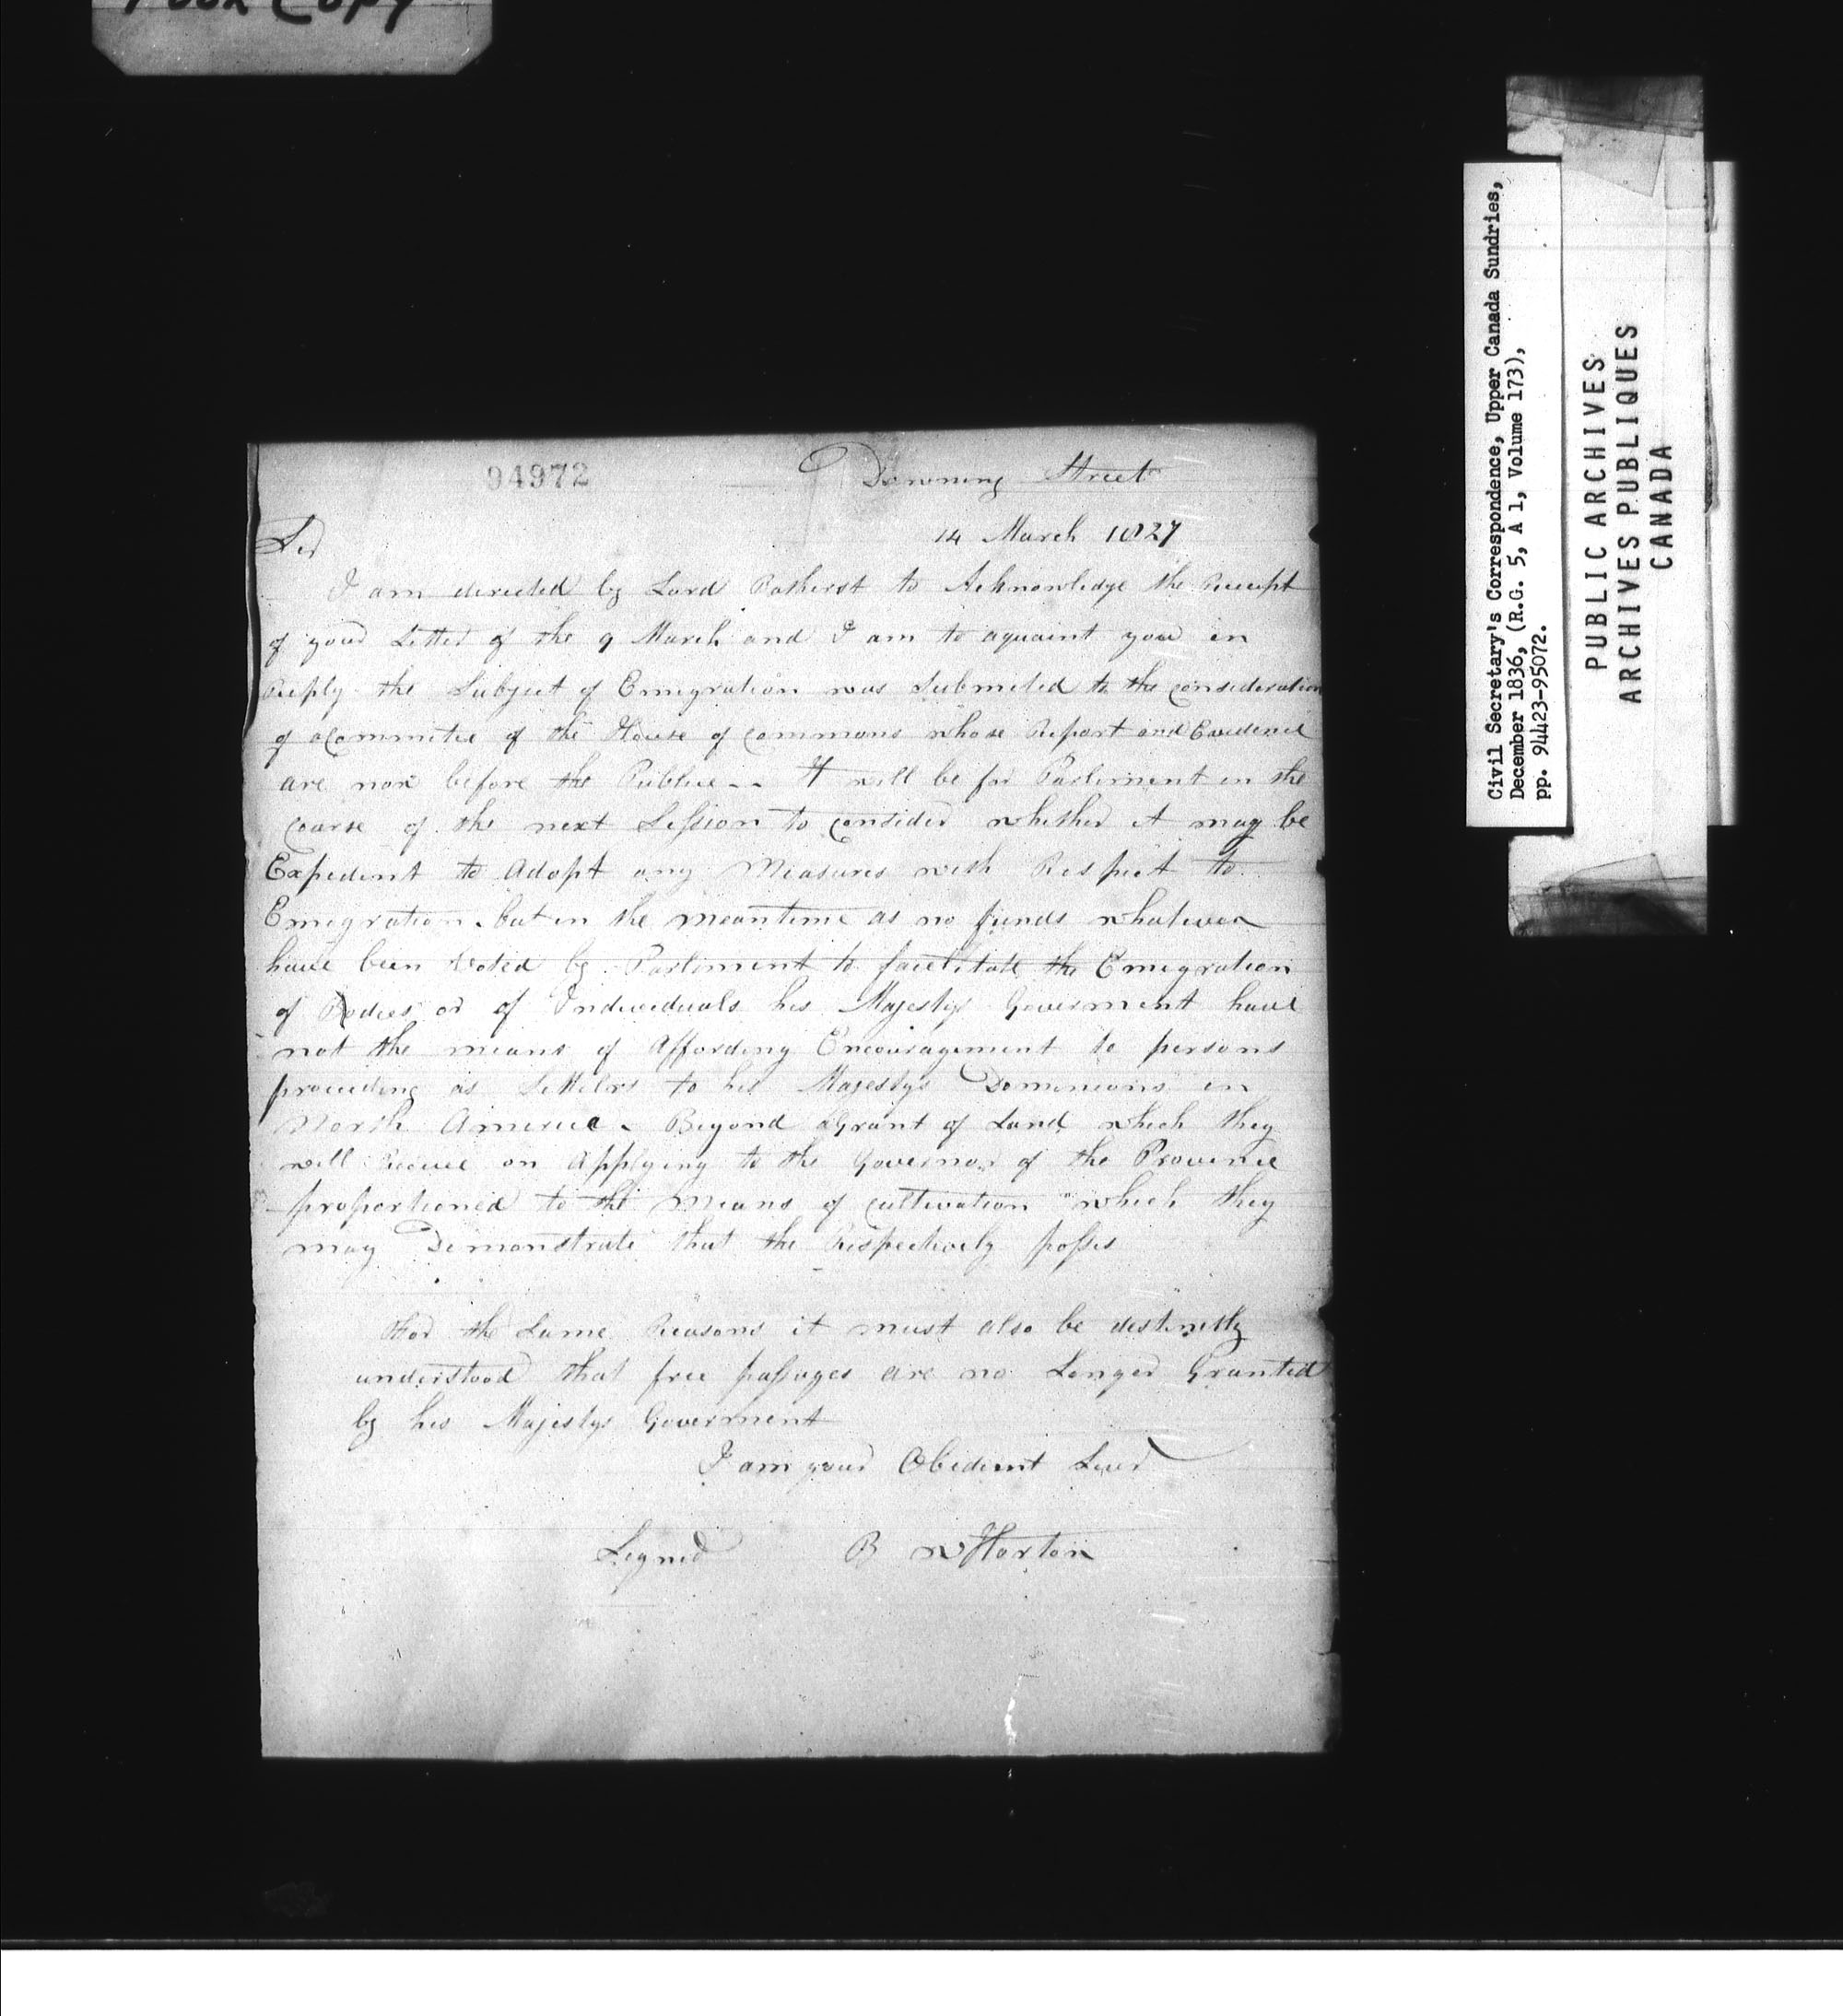 Poor Copy
94972
Downing Street
14 March 1827
Sir
I am directed by Lord Batherst to Acknowledge the Receipt
of your Letter of the 9 March and I am to aquaint you in
Reply the Subject of Emigration was Submited to the consideration
of a Committee of the House of Commons whose Report and Evidence
are now before the Publice -- It will be for Parliment in the
Course of the next Session to consider whether it may be
Expedient to Adopt any Measures with Respect to
Emigration. but in the meantime as no funds whatever
have been Voted by Parliment to facilitate the Emigration
of Bodies or of Individuals his Majestys Goverment have
not the means of Affording Encouragement to persons
proceeding as Settlers to his Majestys Dominions in
North America. Beyond a Grant of Land which they
will Receive on Applying to the Governor of the Province
proportioned to the Means of cultivation which they
may Demonstrate that the Respectively posses
For the Same Reasons it must also be distinctly
understood that free passages are no Longer Granted
by his Majestys Goverment
I am your Obedient Serv
Signed R W Horton
Civil Secretary's Correspondence, Upper Canada Sundries,
December 1836, (R.G. 5, A 1, Volume 173),
pp. 94423-95072.
PUBLIC ARCHIVES
ARCHIVES PUBLIQUES
CANADA